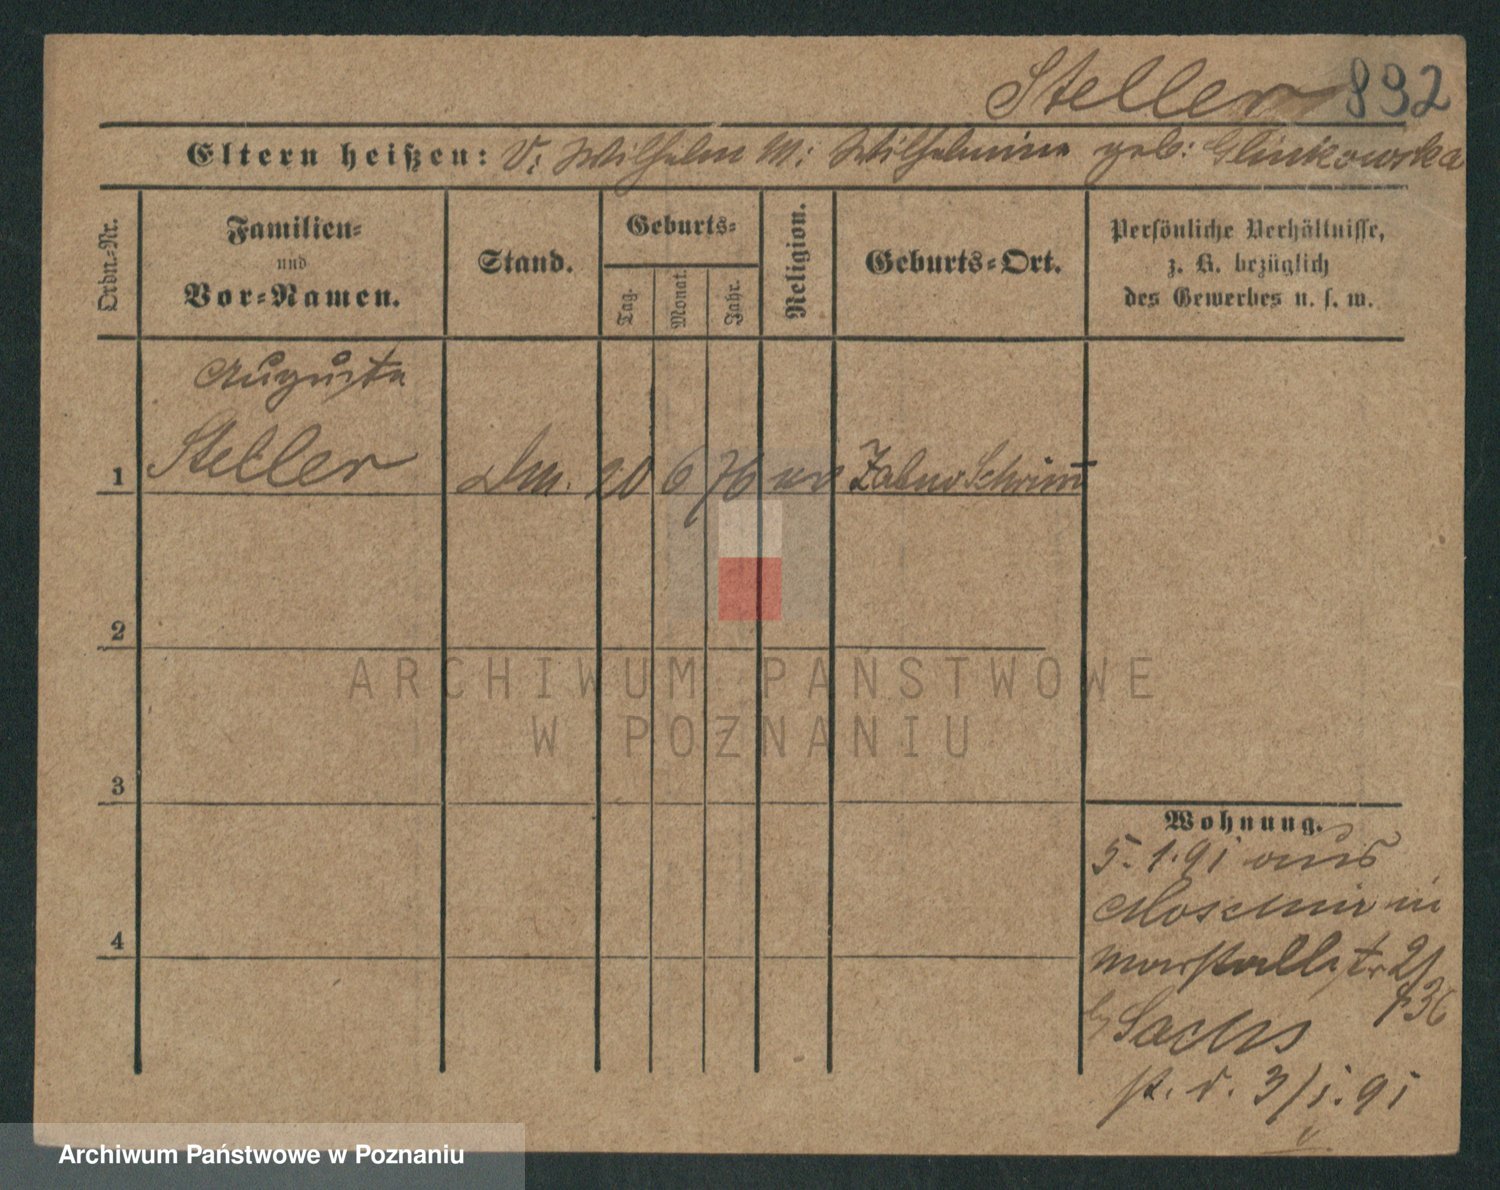 Steller 892
Eltern heißen: V: Wilhelm M: Wilhelmine geb: Glinkowska
Ordn.-Nr.
Familien-
und
Vor-Namen.
Stand.
Geburts-
Tag.
Monat.
Jahr.
Religion.
Geburts-Ort.
Persönliche Verhältnisse,
z. B. bezüglich
des Gewerbes u. s. w.
Auguste
1 Steller 20 6 76 ev Zabno Schrimm
2
3
4
Wohnung.
5. 1. 91 aus
Moschin in
Marstallstr 2/
Sachs
v. 3/1. 91
ARCHIWUM PAŃSTWOWE
W POZNANIU
Archiwum Państwowe w Poznaniu